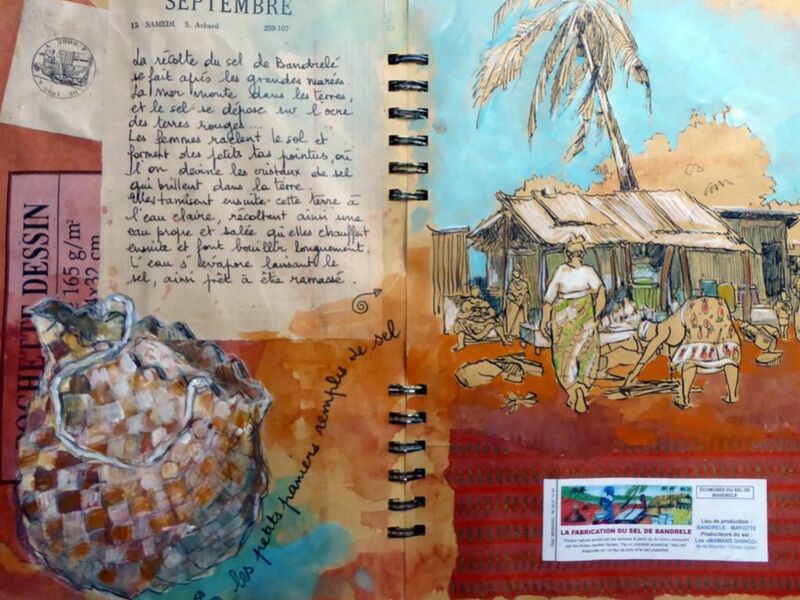 SEPTEMBRE
15 SAMEDI. S. Achard 259-107
La récolte du sel de Bandrelé
se fait après les grandes marées.
La mer monte dans les terres,
et le sel se dépose sur l'ocre
des terres rouges...
Les femmes raclent le sol et
forment des petits tas pointus, où
l'on devine les cristaux de sel
qui brillent dans la terre.
Elles tamisent ensuite cette terre à
l'eau claire, récoltant ainsi une
eau propre et salée qu'elles chauffent
ensuite et font bouillir longuement
L'eau s'évapore laissant le
sel, ainsi prêt à être ramassé.
POCHETTE DESSIN
165 g/m²
32 cm
les petits paniers remplis de sel
LA FABRICATION DU SEL DE BANDRELE
ECOMUSÉE DU SEL DE
BANDRELE
Lieu de production :
BANDRELE - MAYOTTE
Producteurs du sel
Les «MAMANS SHINGO»